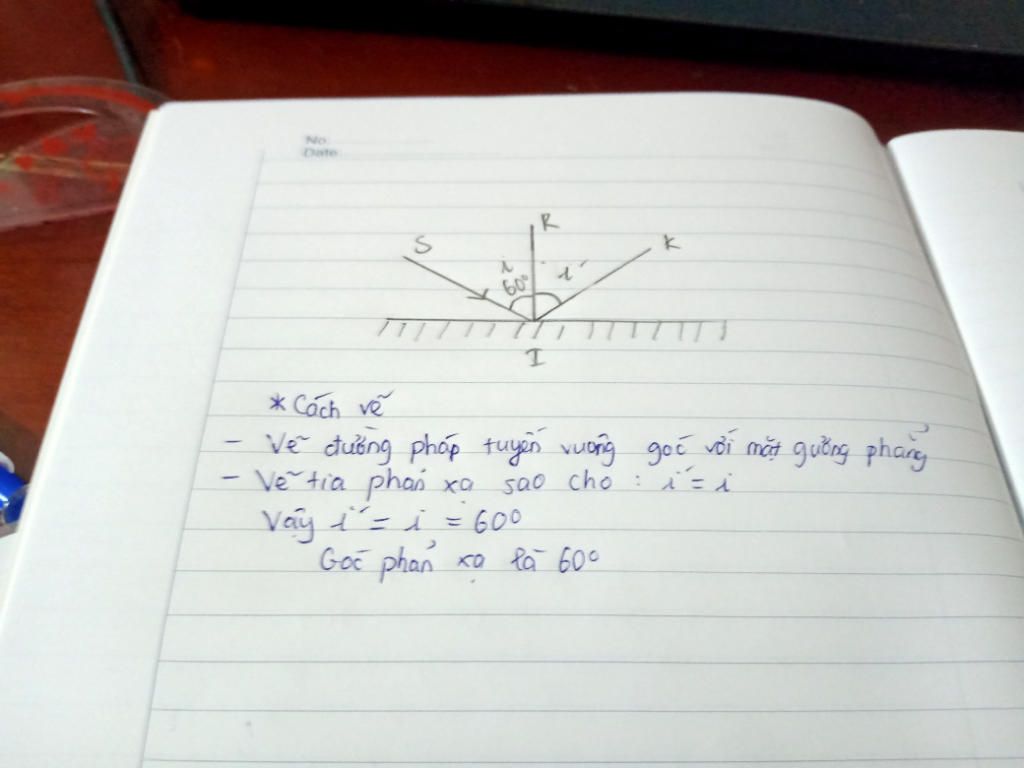 No:
Date:
R
S
K
i
60°
i'
I
* Cách vẽ
- Vẽ đường pháp tuyến vuông góc với mặt gương phẳng
- Vẽ tia phản xạ sao cho : i' = i
Vậy i' = i = 60°
Góc phản xạ là 60°